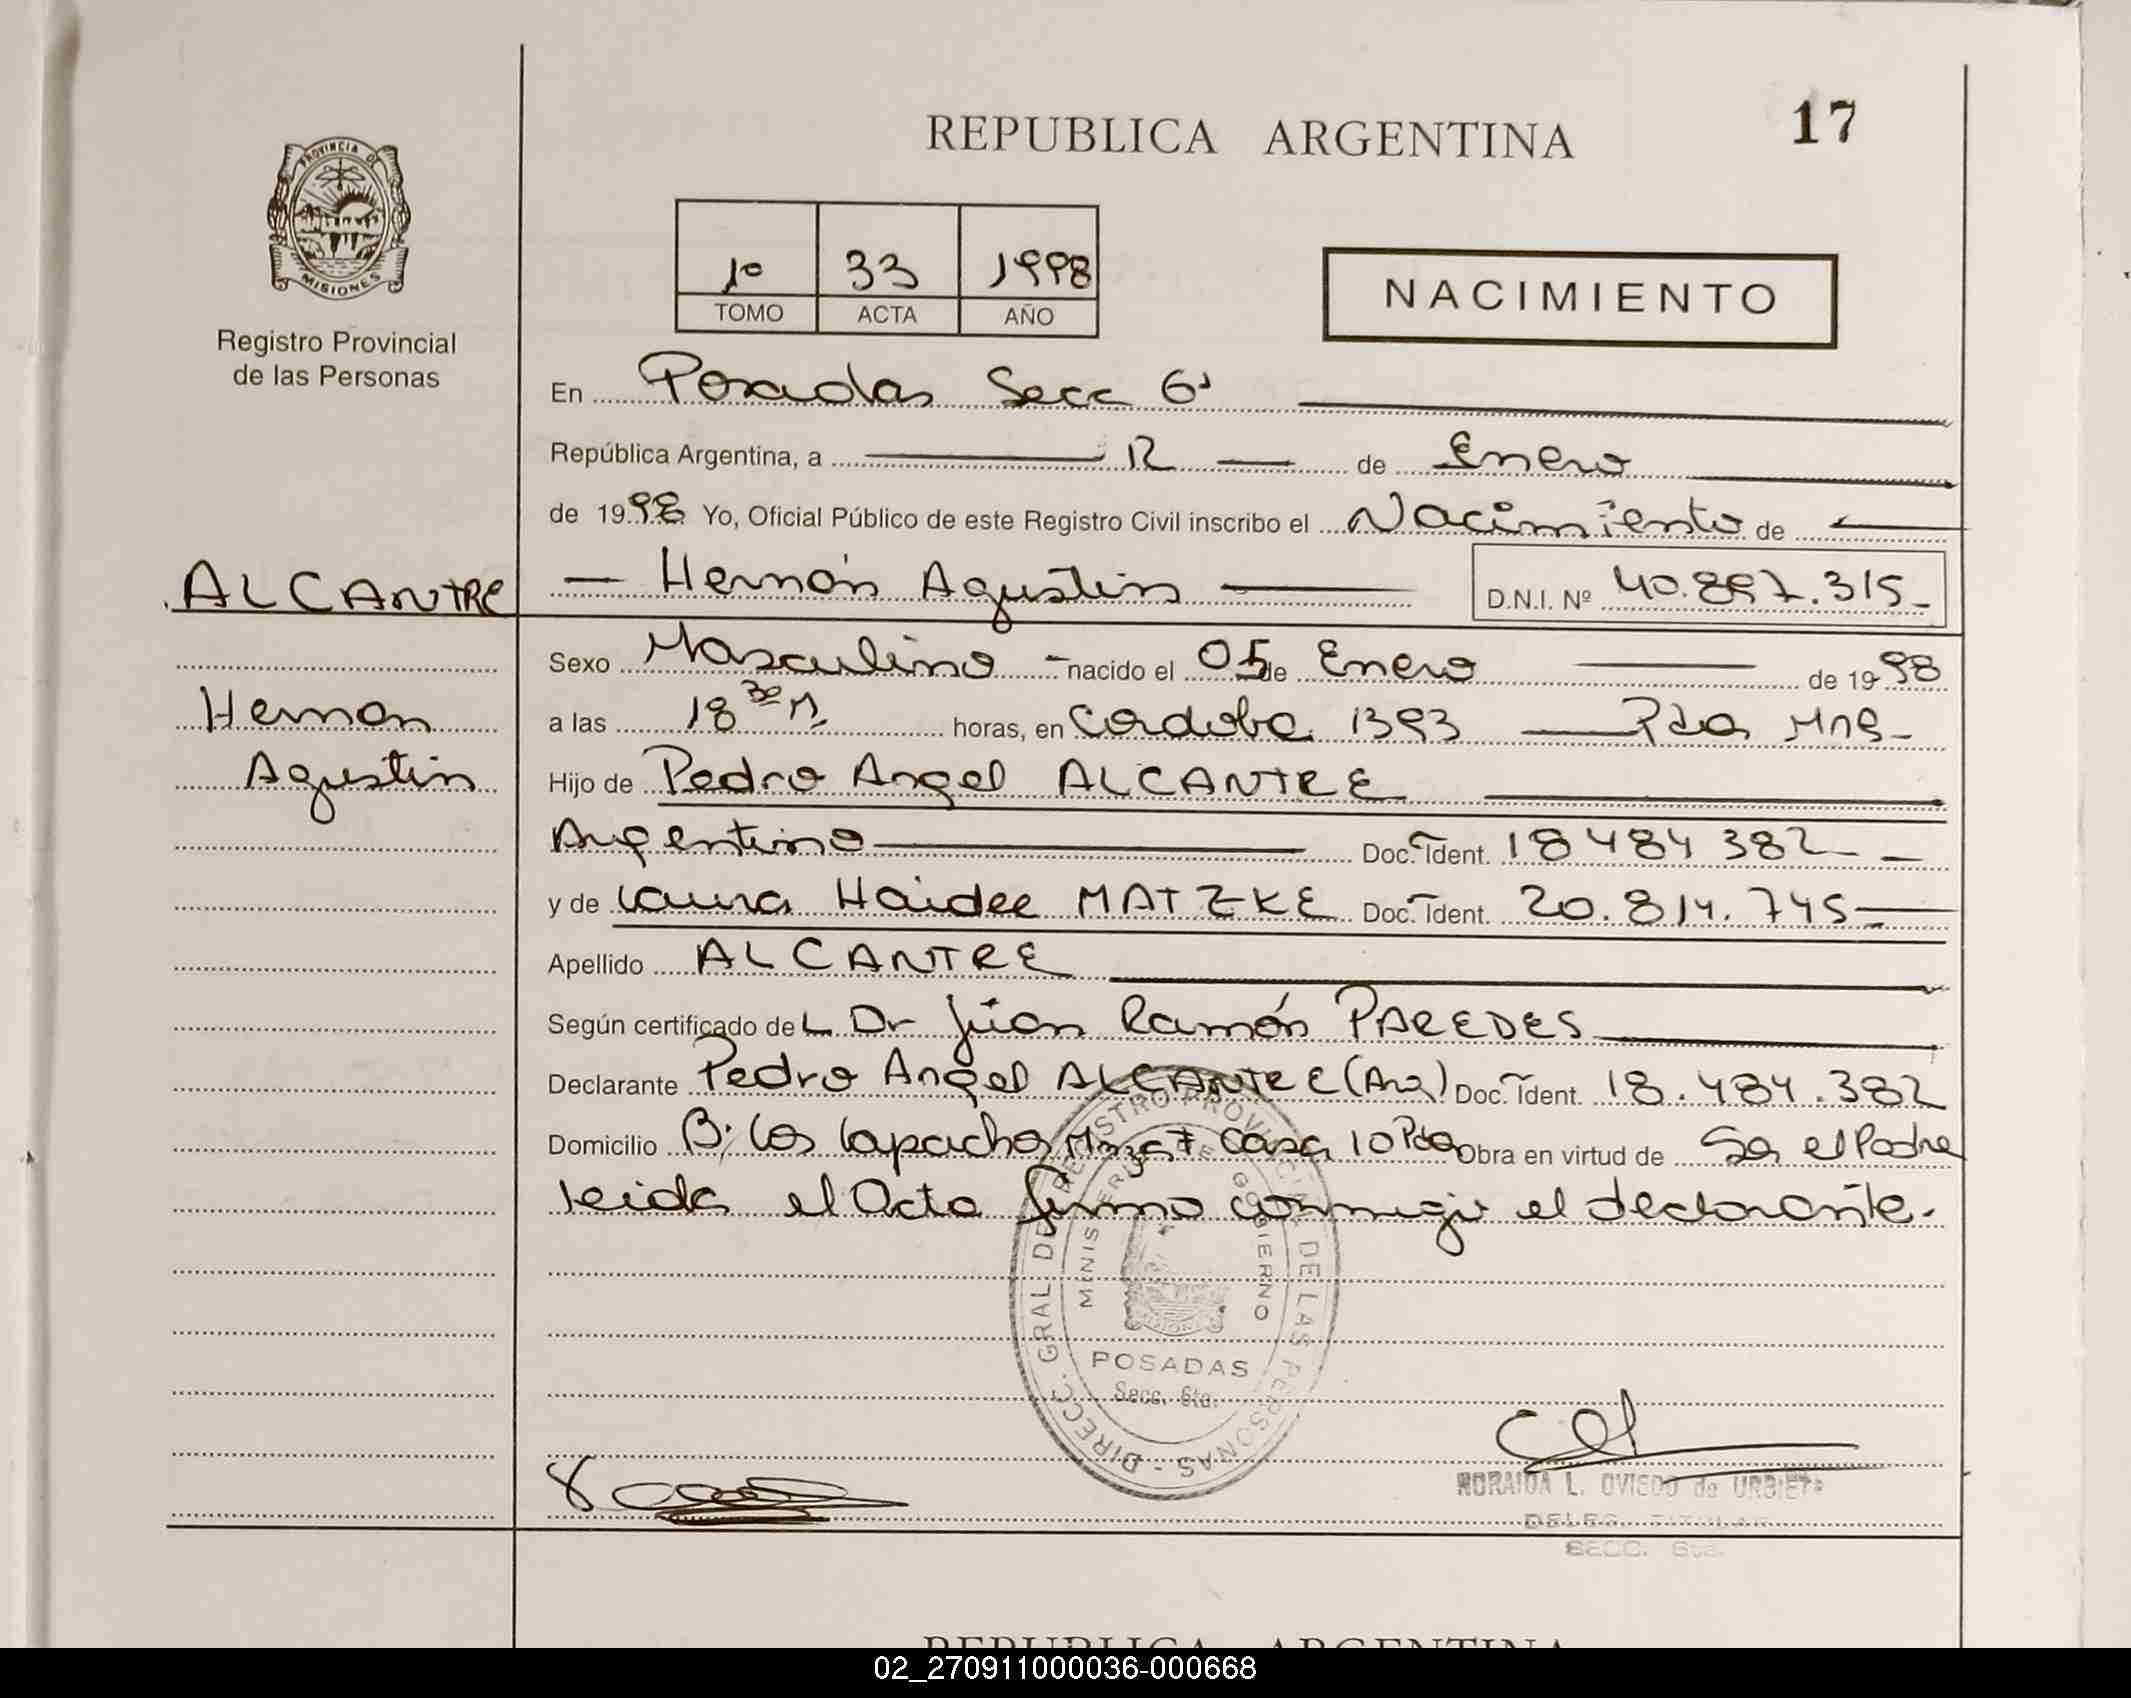 17
REPUBLICA ARGENTINA
PROVINCIA DE
MISIONES
Registro Provincial
de las Personas
1º 33 1998
TOMO ACTA AÑO
NACIMIENTO
En Posadas Secc 6ª
República Argentina, a 12 de Enero
de 1998 Yo, Oficial Público de este Registro Civil inscribo el Nacimiento de
ALCANTRE
Hernán Agustin D.N.I. Nº 40.897.315
Hernan
Agustin
Sexo Masculino nacido el 05 de Enero de 1998
a las 18 30 M. horas, en Cordoba 1393 Pdas Mns
Hijo de Pedro Angel ALCANTRE
Argentino Doc. Ident. 18 484 382
y de Laura Haidee MATZKE Doc. Ident. 20.814.745
Apellido ALCANTRE
Según certificado del Dr Juan Ramón PAREDES
Declarante Pedro Angel ALCANTRE (Arg) Doc. Ident. 18.484.382
Domicilio B: Los Lapachos Mza 7 Casa 10 Pdas Obra en virtud de Ser el Padre
leida el Acta firma conmigo el declarante.
DIRECC. GRAL DE REGISTRO PROVINCIAL DE LAS PERSONAS
MINISTERIO DE GOBIERNO
POSADAS
Secc. 6ta.
NORAIDA L. OVIEDO de URBIETA
DELEG. TITULAR
SECC. 6ta.
REPUBLICA ARGENTINA
02_270911000036-000668